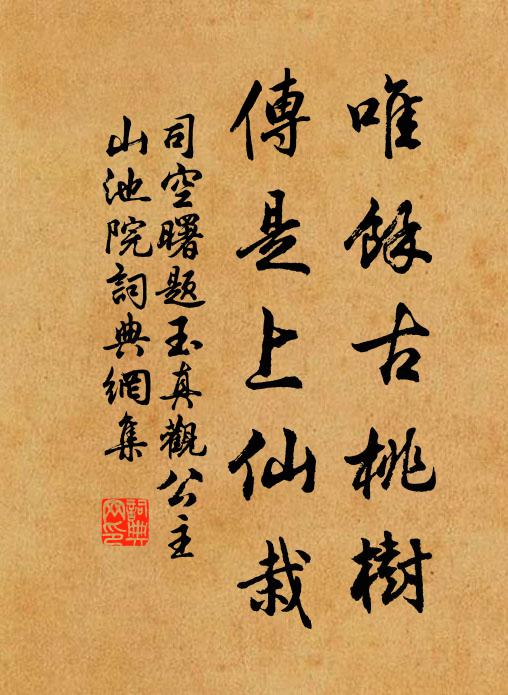 唯餘古桃樹
傳是上仙栽
司空曙題玉真觀公主
山池院詞典網集
詞典
网印